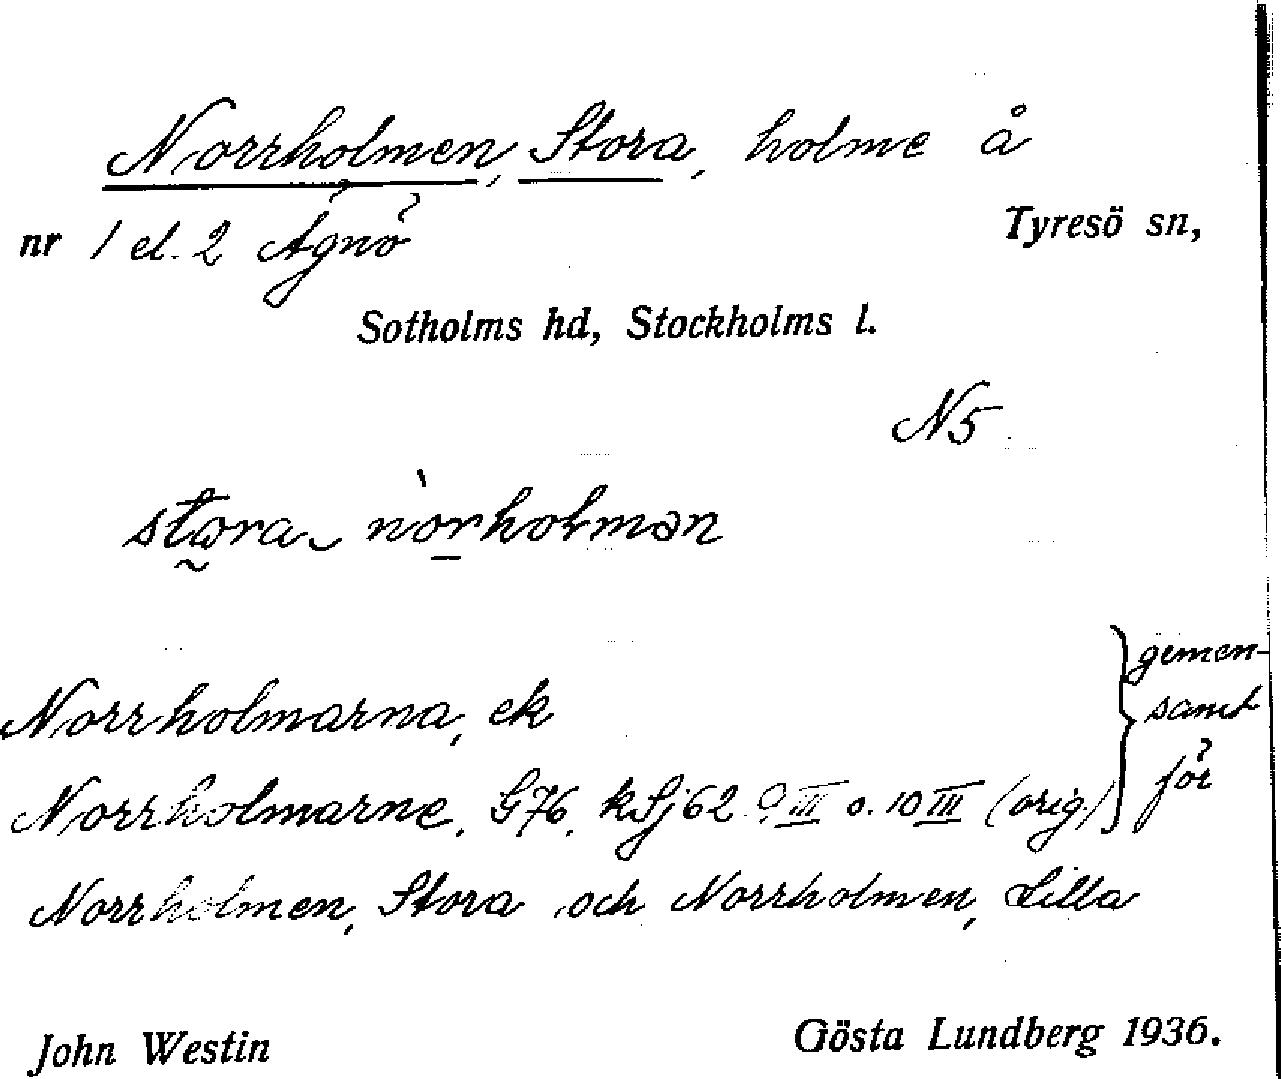 Norrholmen, Stora, holme å
nr 1 el. 2 Ägnö Tyresö sn,
Sotholms hd, Stockholms l.
N5
stωra norholmən
Norrholmarna, ek
Norrholmarne, G76, kSj62 9 III o. 10 III (orig.) } gemen-
samt
för
Norrholmen, Stora och Norrholmen, Lilla
John Westin Gösta Lundberg 1936.